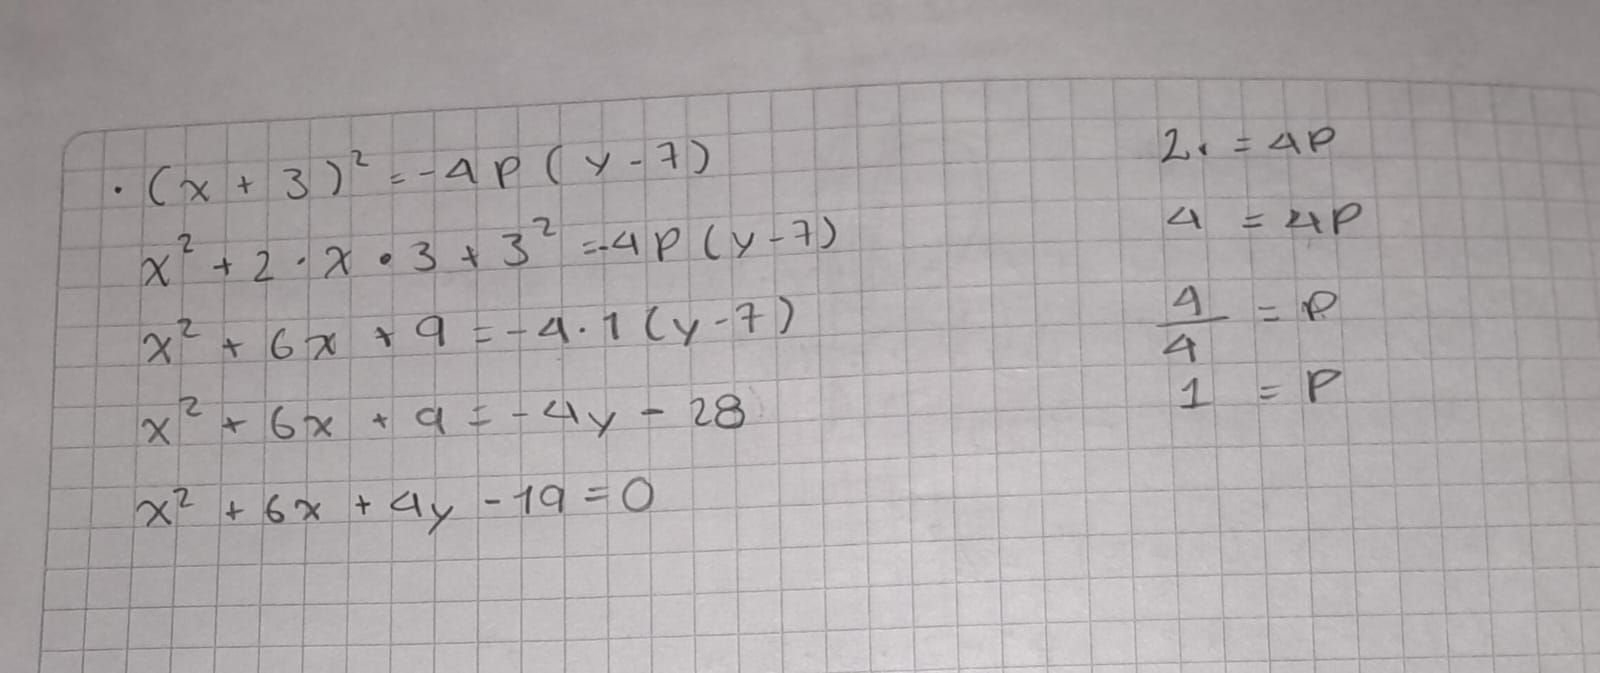 · (x + 3)² = -4p (y - 7)
x² + 2 · x · 3 + 3² = -4p (y - 7)
x² + 6x + 9 = -4 · 1 (y - 7)
x² + 6x + 9 = -4y - 28
x² + 6x + 4y - 19 = 0
2. = 4p
4 = 4p
4/4 = p
1 = p